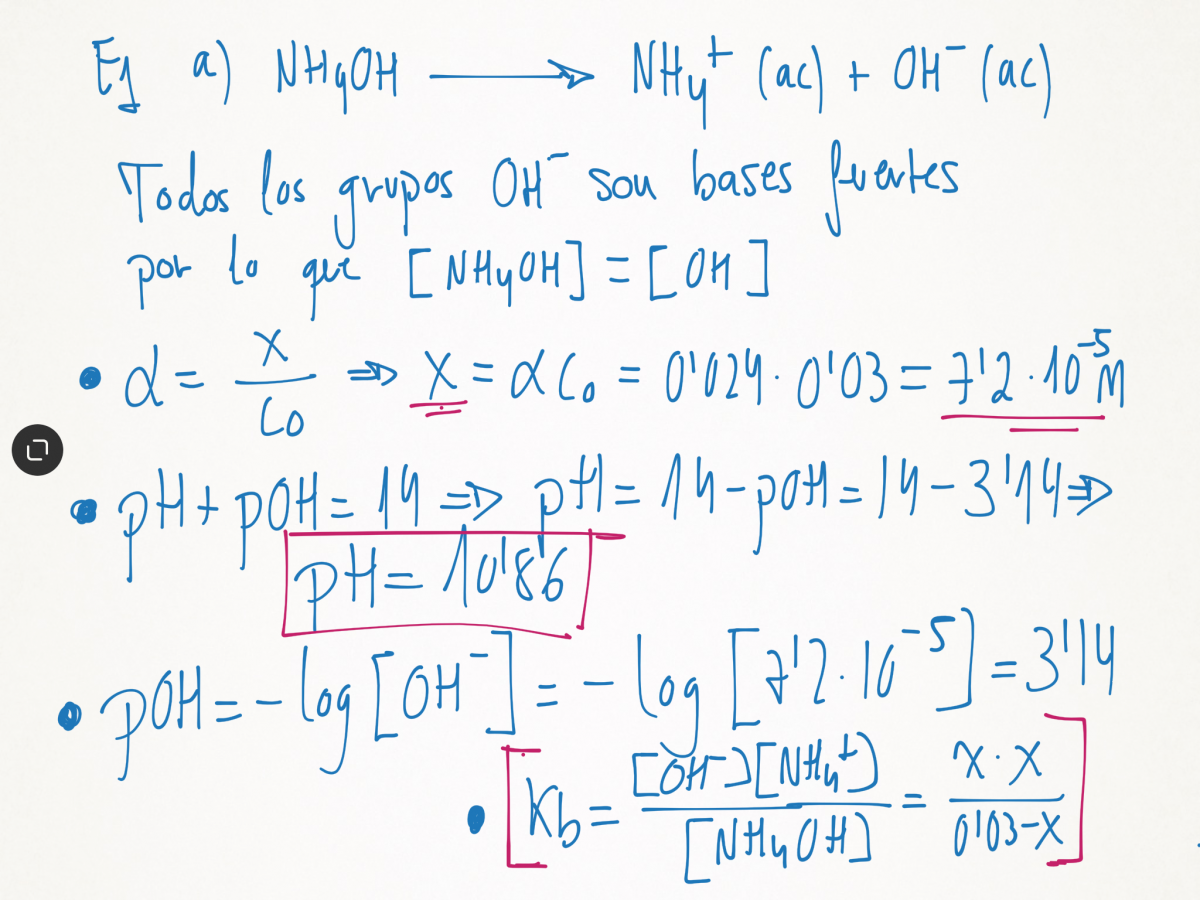 Ej a) NH4OH ⟶ NH4+ (ac) + OH- (ac)
Todos los grupos OH- son bases fuertes
por lo que [NH4OH] = [OH]
• α = x/Co ⇒ x = αCo = 0'024 · 0'03 = 7'2 · 10^-5 M
• pH + pOH = 14 ⇒ pH = 14 - pOH = 14 - 3'14 ⇒
pH = 10'86
• pOH = -log [OH-] = -log [7'2 · 10^-5] = 3'14
• [Kb = [OH-][NH4+]/[NH4OH] = x · x/0'03-x]